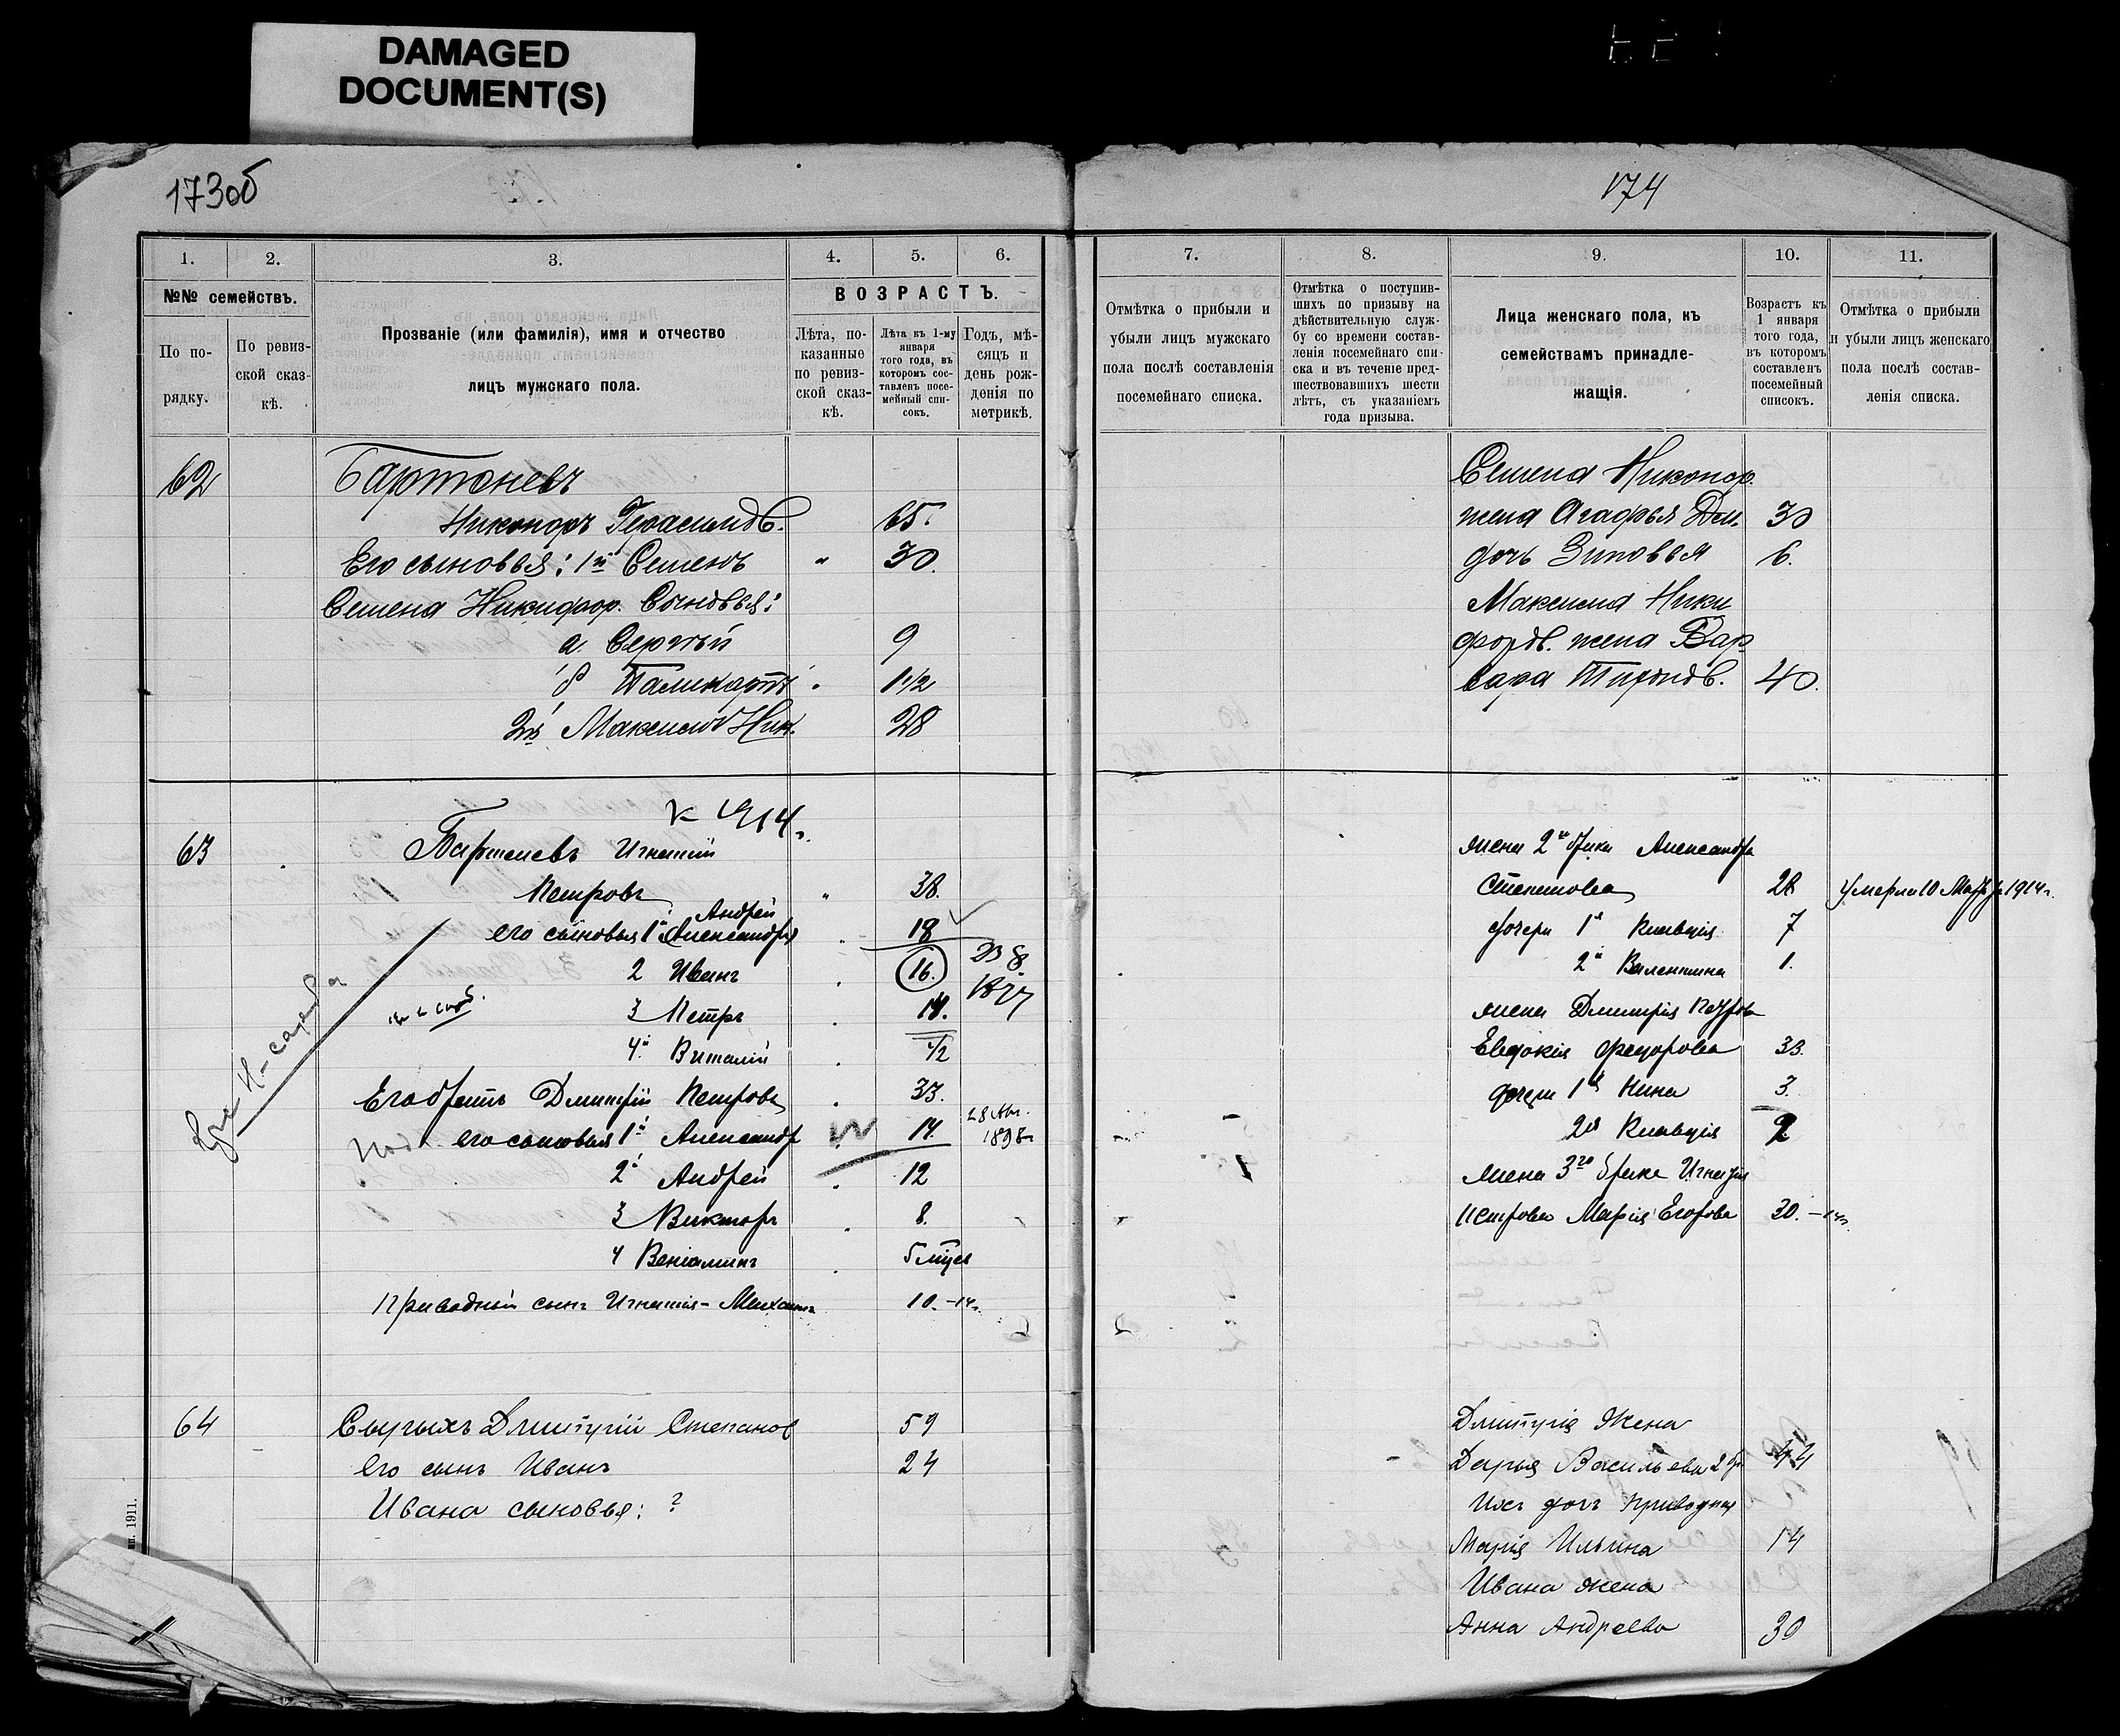 DAMAGED
DOCUMENT(S)
173об
1.
2.
3.
4.
5.
6.
№№ семействъ.
ВОЗРАСТЪ.
По по-
рядку.
По ревиз-
ской сказ-
кѣ.
Прозваніе (или фамилія), имя и отчество
лицъ мужскаго пола.
Лѣта, по-
казанные
по ревиз-
ской сказ-
кѣ.
Лѣта къ 1-му
января
того года, въ
которомъ сос-
тавленъ посе-
мейный спи-
сокъ.
Годъ, мѣ-
сяцъ и
день рож-
денія по
метрикѣ.
62
Бартеневъ
Никоноръ Герасимов. 65.
Его сыновья: 1й Семенъ " 30.
Семена Никифор. Сыновья:
а Сергѣй 9
б Паликарпъ 1 1/2
2й Максимъ Ник. 28
к 1914 г.
63 Бартеневъ Игнатій
Петровъ " 38.
Андрей
его сыновья 1й Александръ 18
2 Иванъ 16. 23 8.
1897
3 Петръ 14.
4й Виталій 1/2
Его братъ Дмитрій Петровъ 33.
его сыновья 1й Александр 14. 28 Авг. 1898 г
2й Андрей 12
3 Викторъ 8.
4 Веніаминъ 5 мцев
Приводный сынъ Игнатія - Михаилъ 10. -14г.
64 Сычыхъ Дмитрій Степанов 59
его сынъ Иванъ 24
Ивана сыновья: ?
1911.
174
7.
8.
9.
10.
11.
Отмѣтка о прибыли и
убыли лицъ мужскаго
пола послѣ составленія
посемейнаго списка.
Отмѣтка о поступив-
шихъ по призыву на
дѣйствительную служ-
бу со времени состав-
ленія посемейнаго спи-
ска и въ теченіе пред-
шествовавшихъ шести
лѣтъ, съ указаніемъ
года призыва.
Лица женскаго пола, къ
семействамъ принадле-
жащія.
Возрастъ къ
1 января
того года,
въ которомъ
составленъ
посемейный
списокъ.
Отмѣтка о прибыли
и убыли лицъ женскаго
пола послѣ состав-
ленія списка.
Семена Никонор.
жена Агафья Дем. 30
дочь Зиновья 6.
Максима Ники
форов. жена Вар
вара Тихонов. 40.
жена 2й брака Александра
Степанова 28 умерла 10 Марта 1914г.
дочери 1я Клавдія 7
2я Валентина 1.
жена Дмитрія Петрова
Евдокія Федорова 33.
дочери 1я Нина 3.
2я Клавдія 2
жена 3го брака Игнатія
Петрова Марія Егорова 30. -14г.
Дмитрія Жена
Дарья Васильева 2 бр. 44
Ихъ дочь приводная
Марія Ильина 14
Ивана жена
Анна Андреева 30